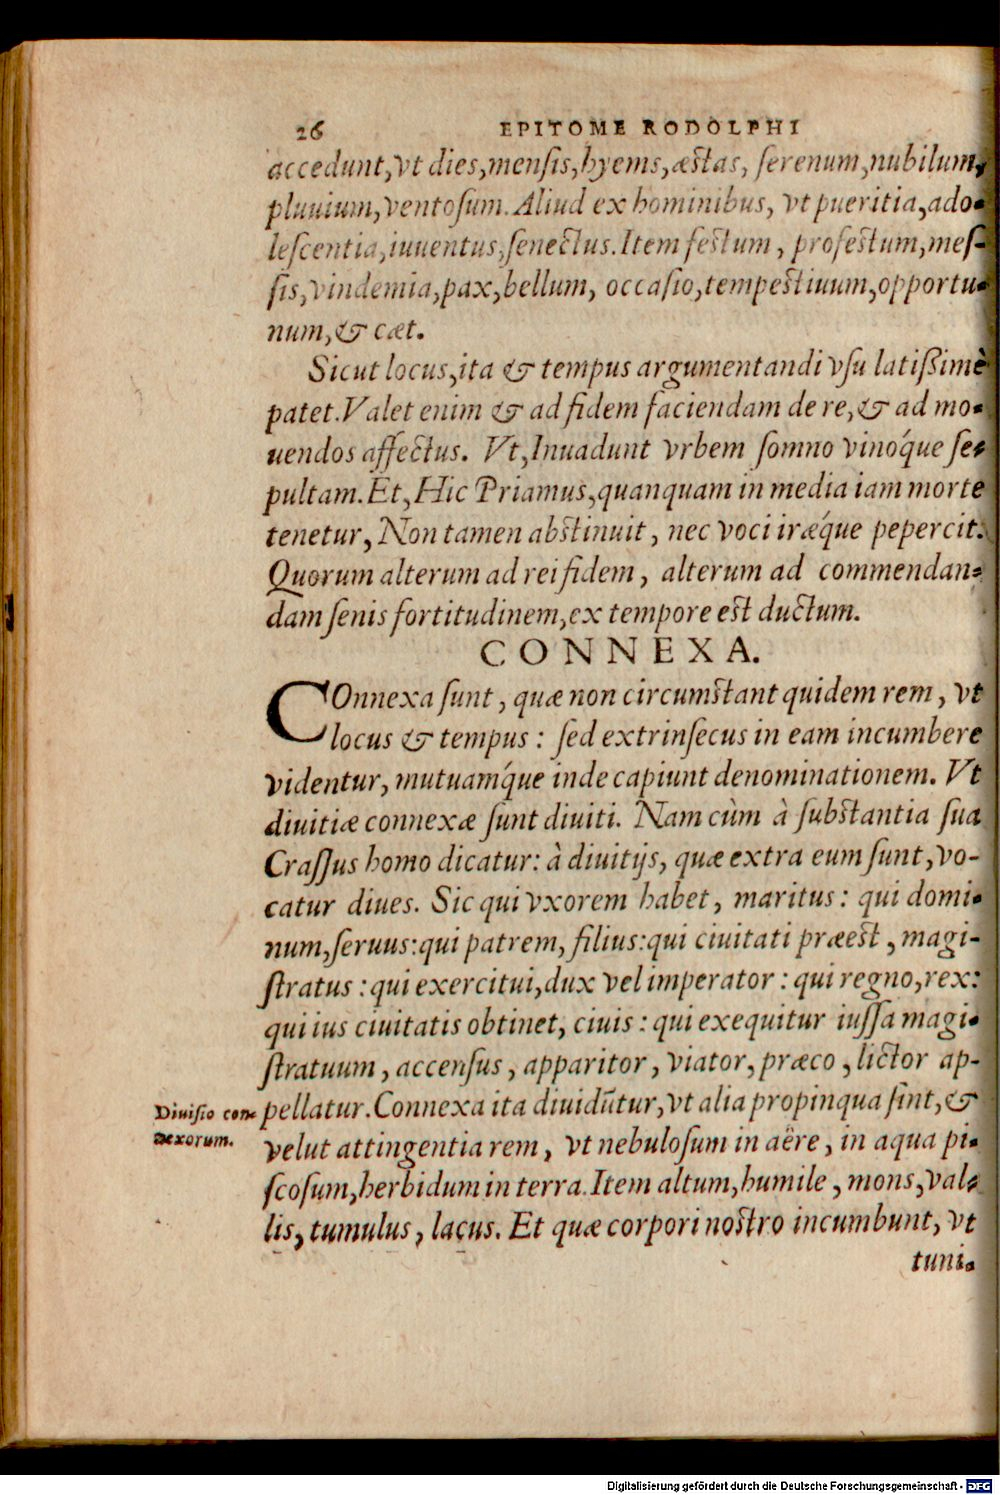 26 EPITOME RODOLPHI
accedunt, vt dies, mensis, hyems, æstas, serenum, nubilum,
pluuium, ventosum. Aliud ex hominibus, vt pueritia, ado-
lescentia, iuuentus, senectus. Item festum, profestum, mes-
sis, vindemia, pax, bellum, occasio, tempestiuum, opportu-
num, & cæt.
Sicut locus, ita & tempus argumentandi vsu latißimè
patet. Valet enim & ad fidem faciendam de re, & ad mo-
uendos affectus. Vt, Inuadunt vrbem somno vinoq́ue se-
pultam. Et, Hic Priamus, quanquam in media iam morte
tenetur, Non tamen abstinuit, nec voci iræq́ue pepercit.
Quorum alterum ad rei fidem, alterum ad commendan-
dam senis fortitudinem, ex tempore est ductum.
CONNEXA.
COnnexa sunt, quæ non circumstant quidem rem, vt
locus & tempus: sed extrinsecus in eam incumbere
videntur, mutuamq́ue inde capiunt denominationem. Vt
diuitiæ connexæ sunt diuiti. Nam cùm à substantia sua
Crassus homo dicatur: à diuitijs, quæ extra eum sunt, vo-
catur diues. Sic qui vxorem habet, maritus: qui domi-
num, seruus: qui patrem, filius: qui ciuitati præest, magi-
stratus: qui exercitui, dux vel imperator: qui regno, rex:
qui ius ciuitatis obtinet, ciuis: qui exequitur iussa magi-
stratuum, accensus, apparitor, viator, præco, lictor ap-
pellatur. Connexa ita diuidũtur, vt alia propinqua sint, &
velut attingentia rem, vt nebulosum in aëre, in aqua pi-
scosum, herbidum in terra. Item altum, humile, mons, val-
lis, tumulus, lacus. Et quæ corpori nostro incumbunt, vt
tuni-
Diuisio con-
nexorum.
Digitalisierung gefördert durch die Deutsche Forschungsgemeinschaft - DFG